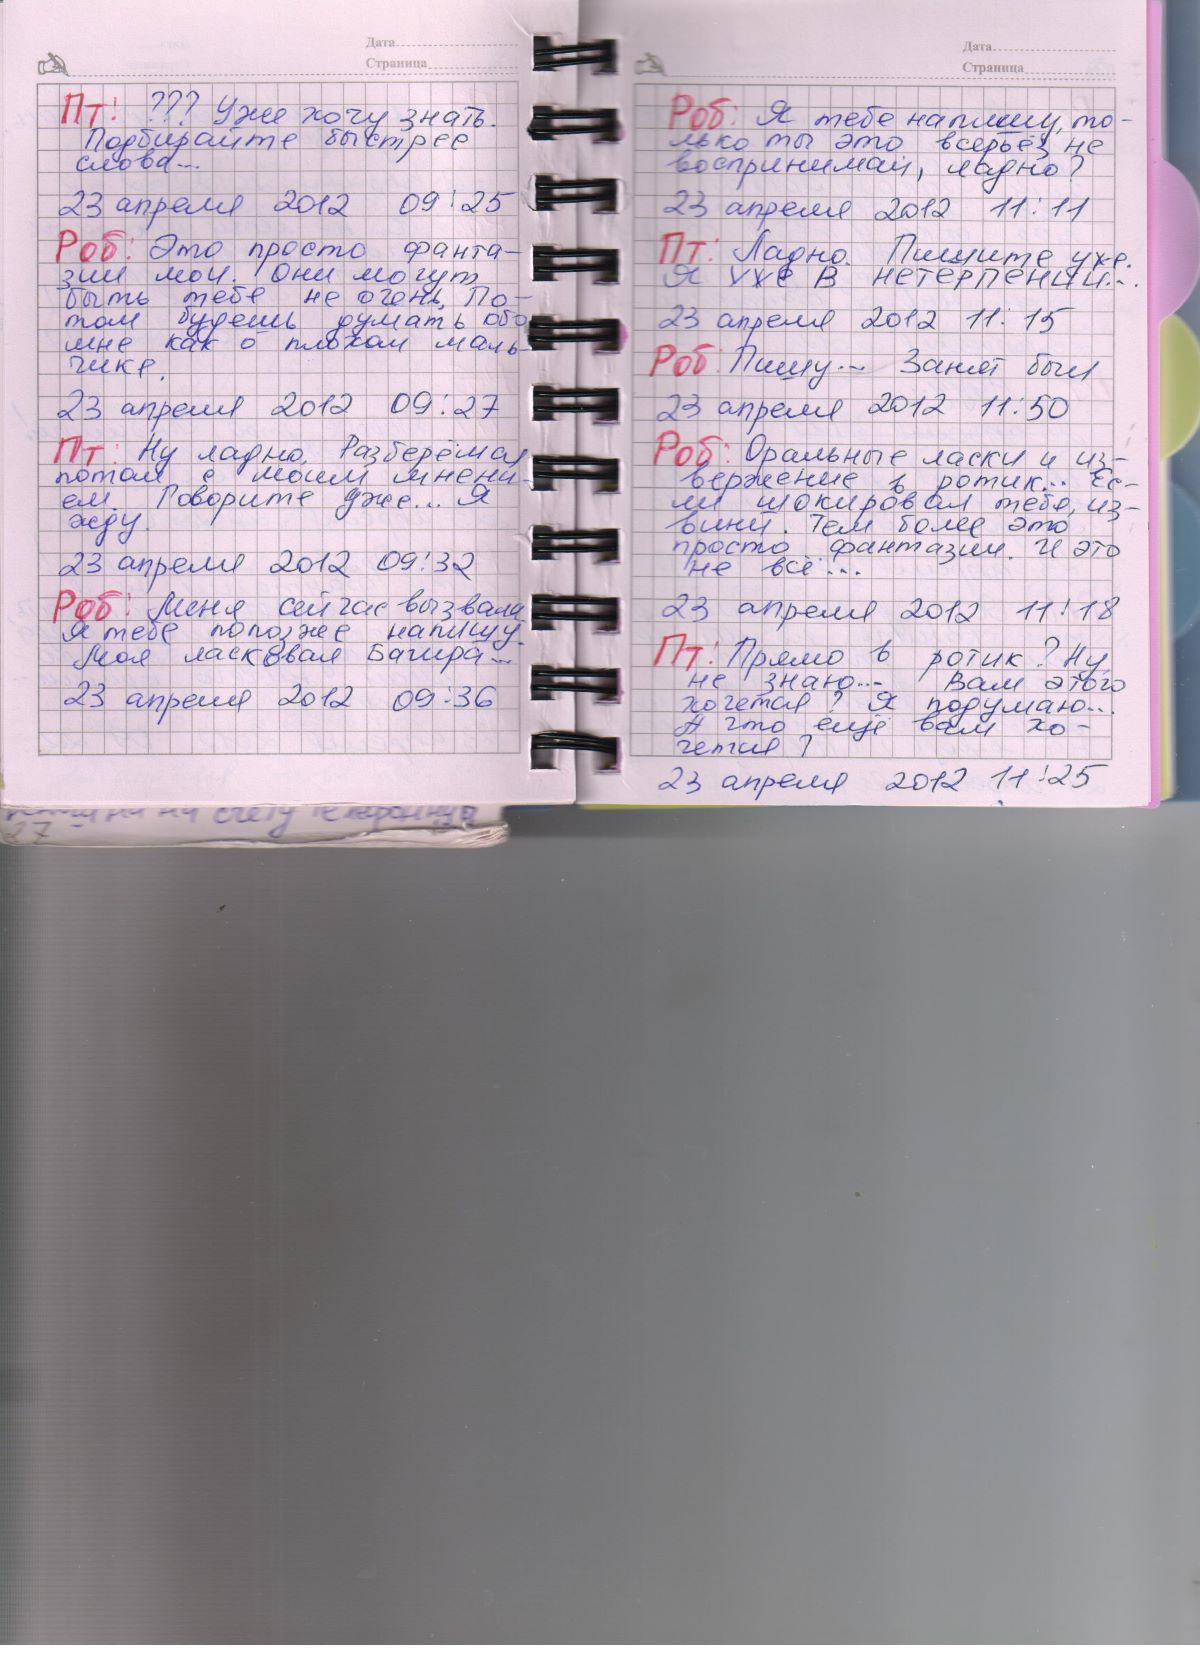 Дата
Страница
Пт: ??? Уже хочу знать.
Подбирайте быстрее
слова...
23 апреля 2012 09:25
Роб: Это просто фанта-
зии мои. Они могут
быть тебе не очень. По-
том будешь думать обо
мне как о плохом маль-
чике.
23 апреля 2012 09:27
Пт: Ну ладно. Разберёмся
потом с моим мнени-
ем. Говорите уже... Я
жду.
23 апреля 2012 09:32
Роб: Меня сейчас вызвала
Я тебе попозже напишу.
Моя ласковая Багира...
23 апреля 2012 09:36
Дата
Страница
Роб: Я тебе напишу, то-
лько ты это всерьёз не
воспринимай, ладно?
23 апреля 2012 11:11
Пт: Ладно. Пишите уже.
Я уже в нетерпении...
23 апреля 2012 11:15
Роб: Пишу... Занят был
23 апреля 2012 11:50
Роб: Оральные ласки и из-
вержение в ротик... Ес-
ли шокировал тебя, из-
вини. Тем более это
просто фантазии. И это
не всё...
23 апреля 2012 11:18
Пт: Прямо в ротик? Ну,
не знаю... Вам этого
хочется? Я подумаю...
А что ещё вам хо-
чется?
23 апреля 2012 11:25
на счету
27